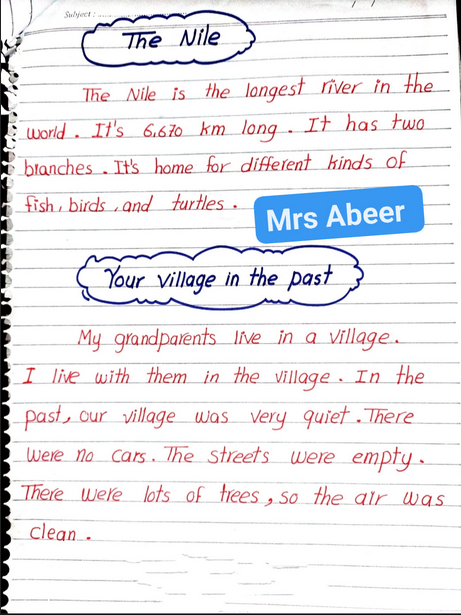 Subject :
The Nile
The Nile is the longest river in the
world. It's 6,670 km long. It has two
branches. It's home for different kinds of
fish, birds, and turtles.
Mrs Abeer
Your village in the past
My grandparents live in a village.
I live with them in the village. In the
past, our village was very quiet. There
were no cars. The streets were empty.
There were lots of trees, so the air was
clean.